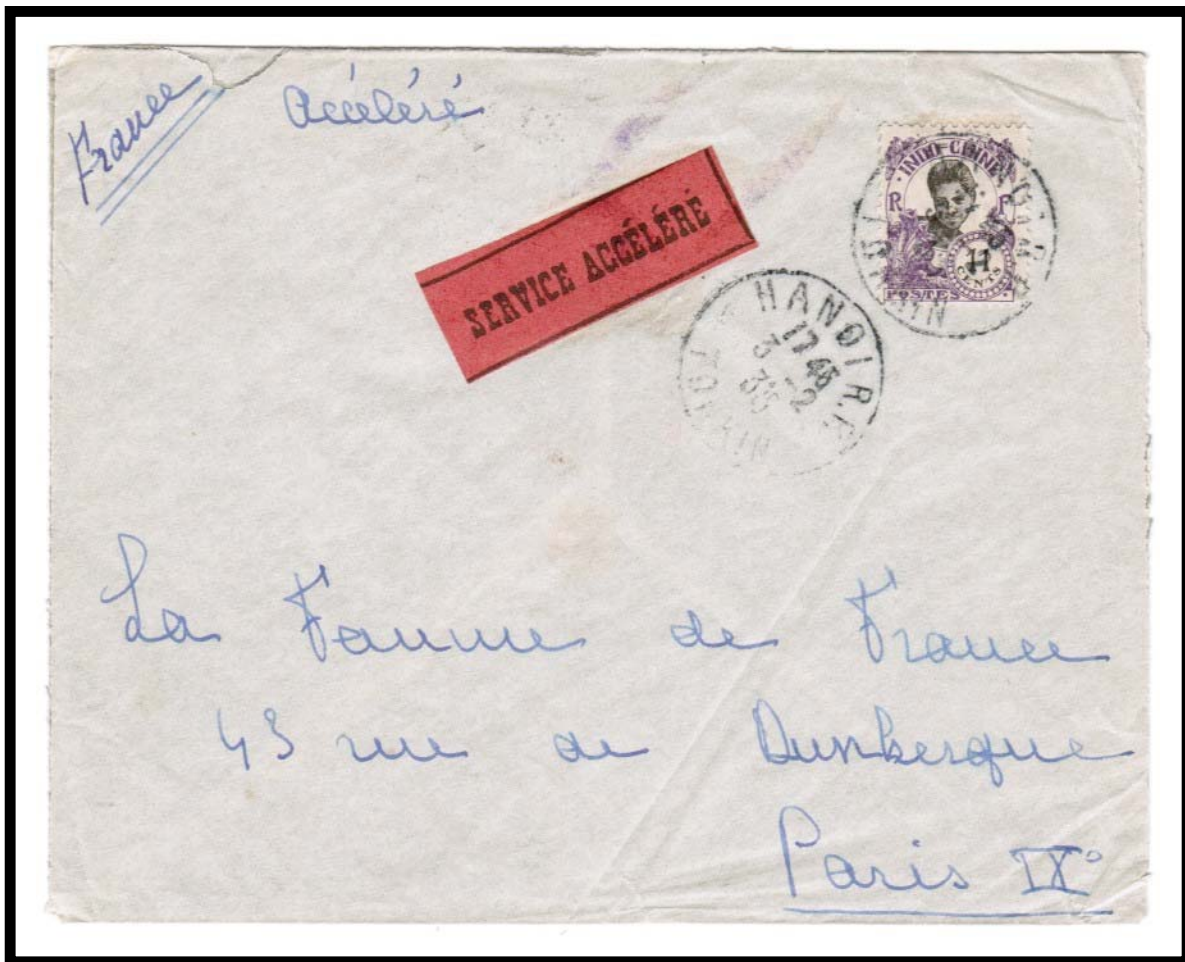 France
Accéléré
SERVICE ACCÉLÉRÉ
INDO-CHINE
R F
11
CENTS
POSTES
HANOI R.P.
17 45
3 -2
35
TONKIN
La Femme de France
43 rue de Dunkerque
Paris IX°